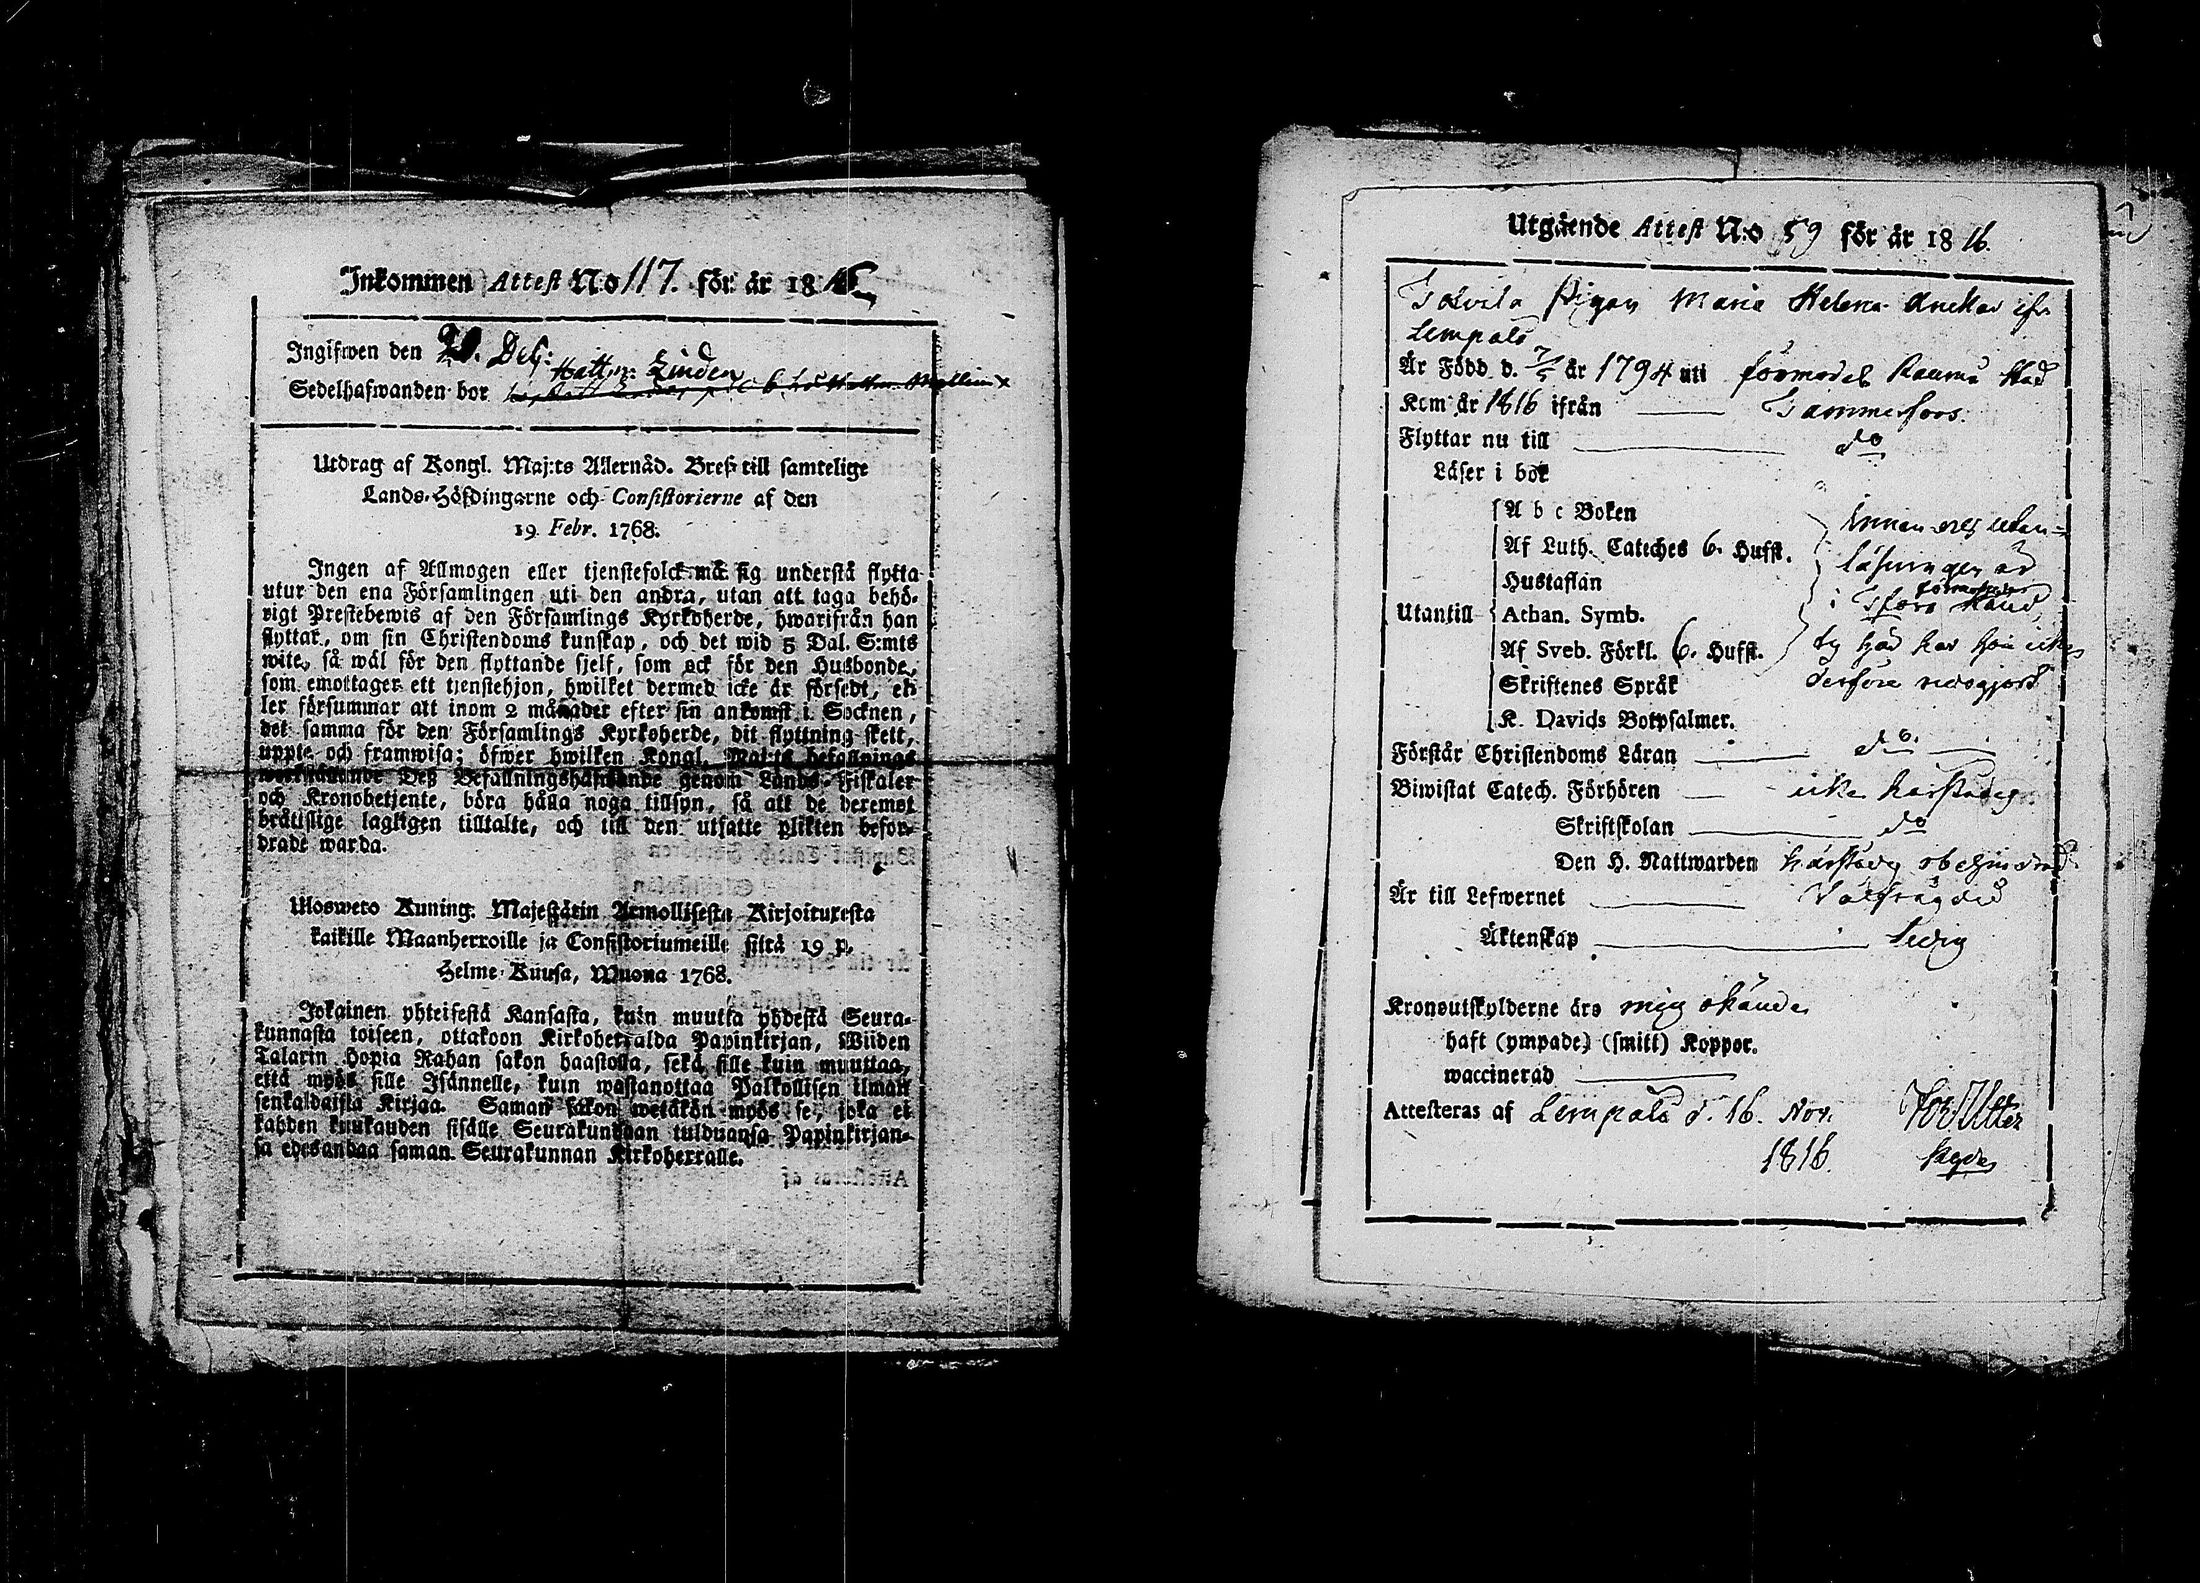 Inkommen Attest N:o 117. för år 1816
Ingifwen den 20. Dec:
Hattm: Linden
Sedelhafwanden bor
Utdrag af Kongl. Maj:ts Allernåd. Bref till samtelige
Lands-Höfdingarne och Consistorierne af den
19 Febr. 1768.
Ingen af Allmogen eller tjenstefolck må sig understå flytta
utur den ena Församlingen uti den andra, utan att taga behö-
rigt Prestebewis af den Församlings Kyrkoherde, hwarifrån han
flyttar, om sin Christendoms kunskap, och det wid 5 Dal. S:mts
wite, så wäl för den flyttande sjelf, som ock för den Husbonde,
som emottager ett tjenstehjon, hwilket dermed icke är försedt, el-
ler försummar att inom 2 månader efter sin ankomst i Socknen,
det samma för den Församlings Kyrkoherde, dit flyttning skett,
uppte och framwisa; öfwer hwilken Kongl. Maj:ts befallnings
werkställande Deß Befallningshafwande genom Lands-Fiskaler
och Kronobetjente, böra hålla noga tillsyn, så att de deremot
brättslige lagligen tilltalte, och till den utsatte plikten befor-
drade warda.
Ulosweto Kuning. Majestätin Armollisesta Kirjoituxesta
kaikille Maanherroille ja Consistoriumeille siitä 19 p.
Helme-Kuusa, Wuona 1768.
Jokainen yhteisestä Kansasta, kuin muutta yhdestä Seura-
kunnasta toiseen, ottakoon Kirkoherralda Papinkirjan, Wiiden
Talarin Hopia Rahan sakon haastolla, sekä sille kuin muuttaa,
että myös sille Isännelle, kuin wastanottaa Palkollisen ilman
senkaldaista Kirjaa. Saman sakon wetäkön myös se, joka ei
kahden kuukauden sisälle Seurakundaan tulduansa Papinkirjan-
sa edesandaa saman Seurakunnan Kirkoherralle.
Utgående Attest N:o 59 för år 1816.
Pigan Maria Helena ifr.
Lempälä
Är Född d. 7/5 år 1794 uti förmodel. Raumo Stad
Kom år 1816 ifrån Tammerfors.
Flyttar nu till do
Läser i bok
Utantill
A b c Boken
Af Luth. Cateches 6. Hufst.
Hustaflan
Athan. Symb.
Af Sveb. Förkl. 6. Hufst.
Skriftenes Språk
K. Davids Botpsalmer.
Innan och utan-
läsningen är
i Tfors
ty här har hon icke
derföre redogjort
Förstår Christendoms Läran do.
Biwistat Catech. Förhören icke härstädes
Skriftskolan do
Den H. Nattwarden härstädes obehindrad
Är till Lefwernet Wälfrägdad
Äktenskap Ledig
Kronoutskylderne äro mig okände
haft (ympade) (smitt) Koppor.
waccinerad
Attesteras af Lempälä d. 16. Nov.
1816.